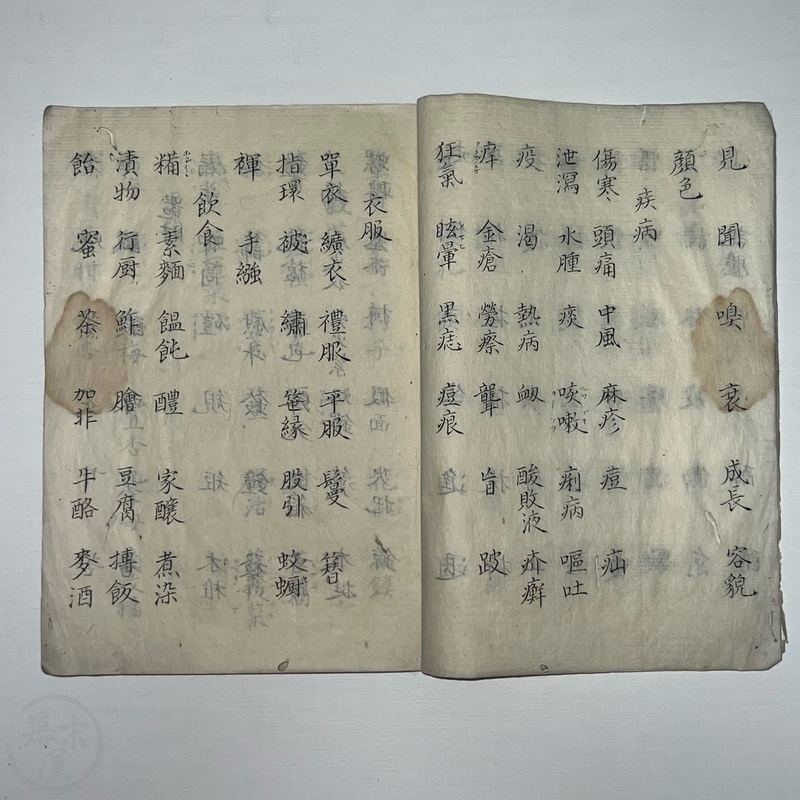 見 聞 嗅 衰 成長 容貌
顔色
疾病
傷寒 頭痛 中風 麻疹 痘 疝
泄瀉 水腫 痰 咳嗽 痢病 嘔吐
疫 渇 熱病 衂 酸敗液 疥癬
痺 金瘡 勞瘵 聾 盲 跛
狂氣 眩暈 黒痣 痘痕
衣服
單衣 纊衣 禮服 平服 鬘 簪
指環 被 繡 笹縁 股引 蚊幮
褌 手繦
飲食
糒 素麵 饂飩 醴 家釀 煮染
漬物 行厨 鮓 膾 豆腐 摶飯
飴 蜜 茶 加非 牛酪 麥酒